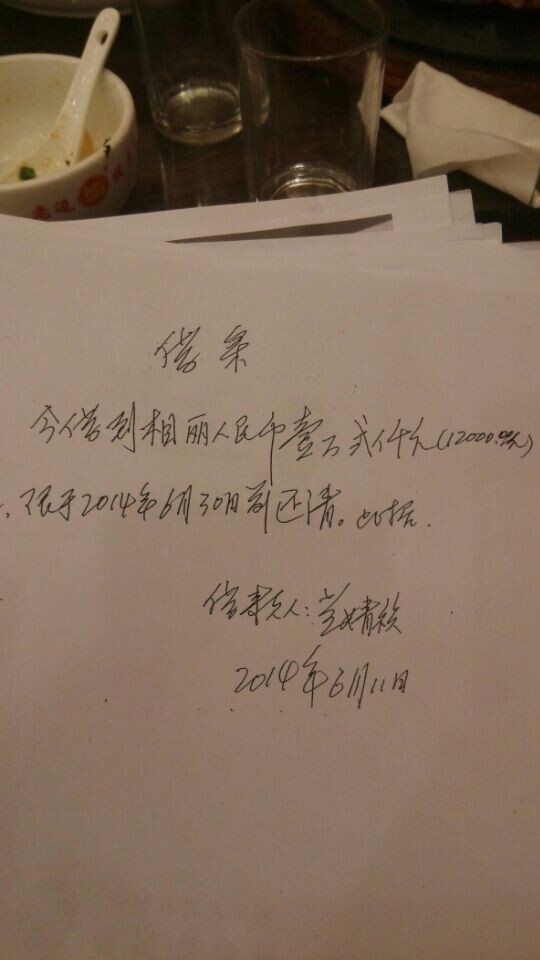 老边
借条
今借到相丽人民币壹万弍仟元(12000.00元)
,限于2014年6月30日前还清。此据.
借款人:兰婧
2014年6月11日